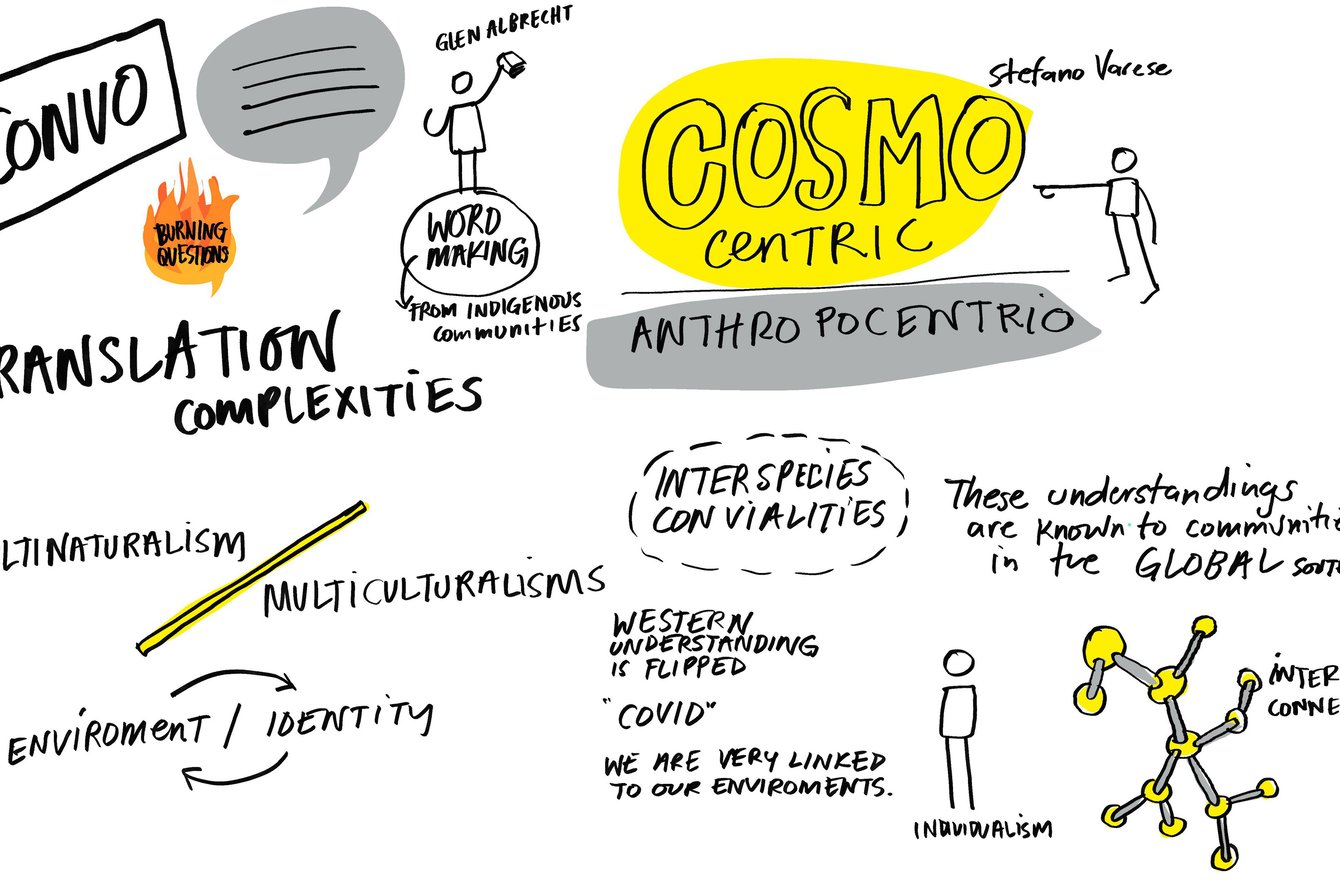 CONVO
BURNING
QUESTIONS
GLEN ALBRECHT
WORD
MAKING
FROM INDIGENOUS
COMMUNITIES
RANSLATION
COMPLEXITIES
LTINATURALISM
MULTICULTURALISMS
ENVIROMENT / IDENTITY
Stefano Varese
COSMO
CENTRIC
ANTHROPOCENTRIO
INTERSPECIES
CONVIALITIES
These understandings
are known to communitie
in the GLOBAL SOUT
WESTERN
UNDERSTANDING
IS FLIPPED
"COVID"
WE ARE VERY LINKED
TO OUR ENVIROMENTS.
INDIVIDUALISM
INTER
CONNE